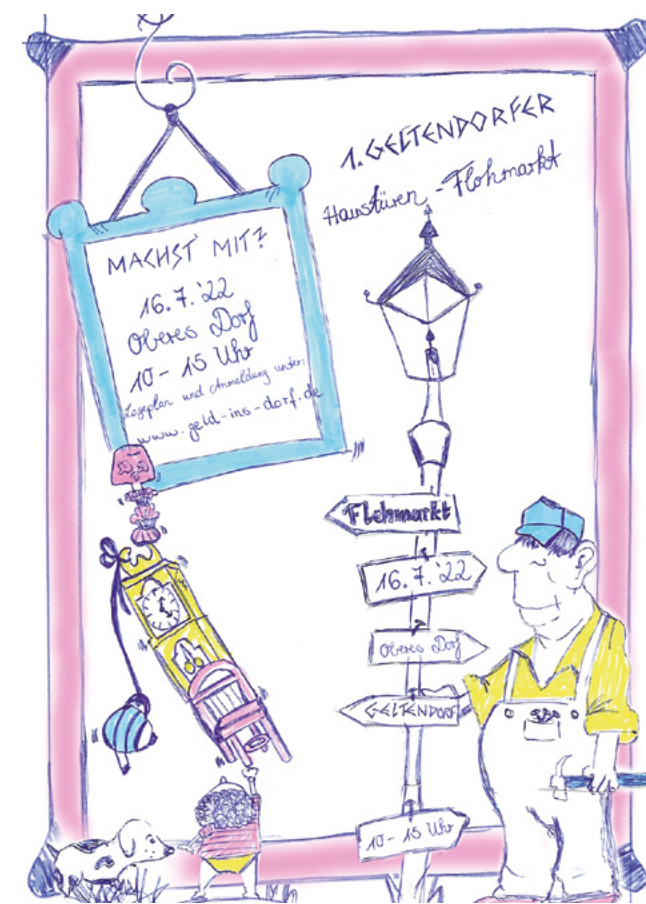 1. GELTENDORFER
Haustüren-Flohmarkt
MACHST MIT?
16.7.'22
Oberes Dorf
10-15 Uhr
Lageplan und Anmeldung unter:
www.geld-ins-dorf.de
Flohmarkt
16.7.'22
Oberes Dorf
GELTENDORF
10-15 Uhr